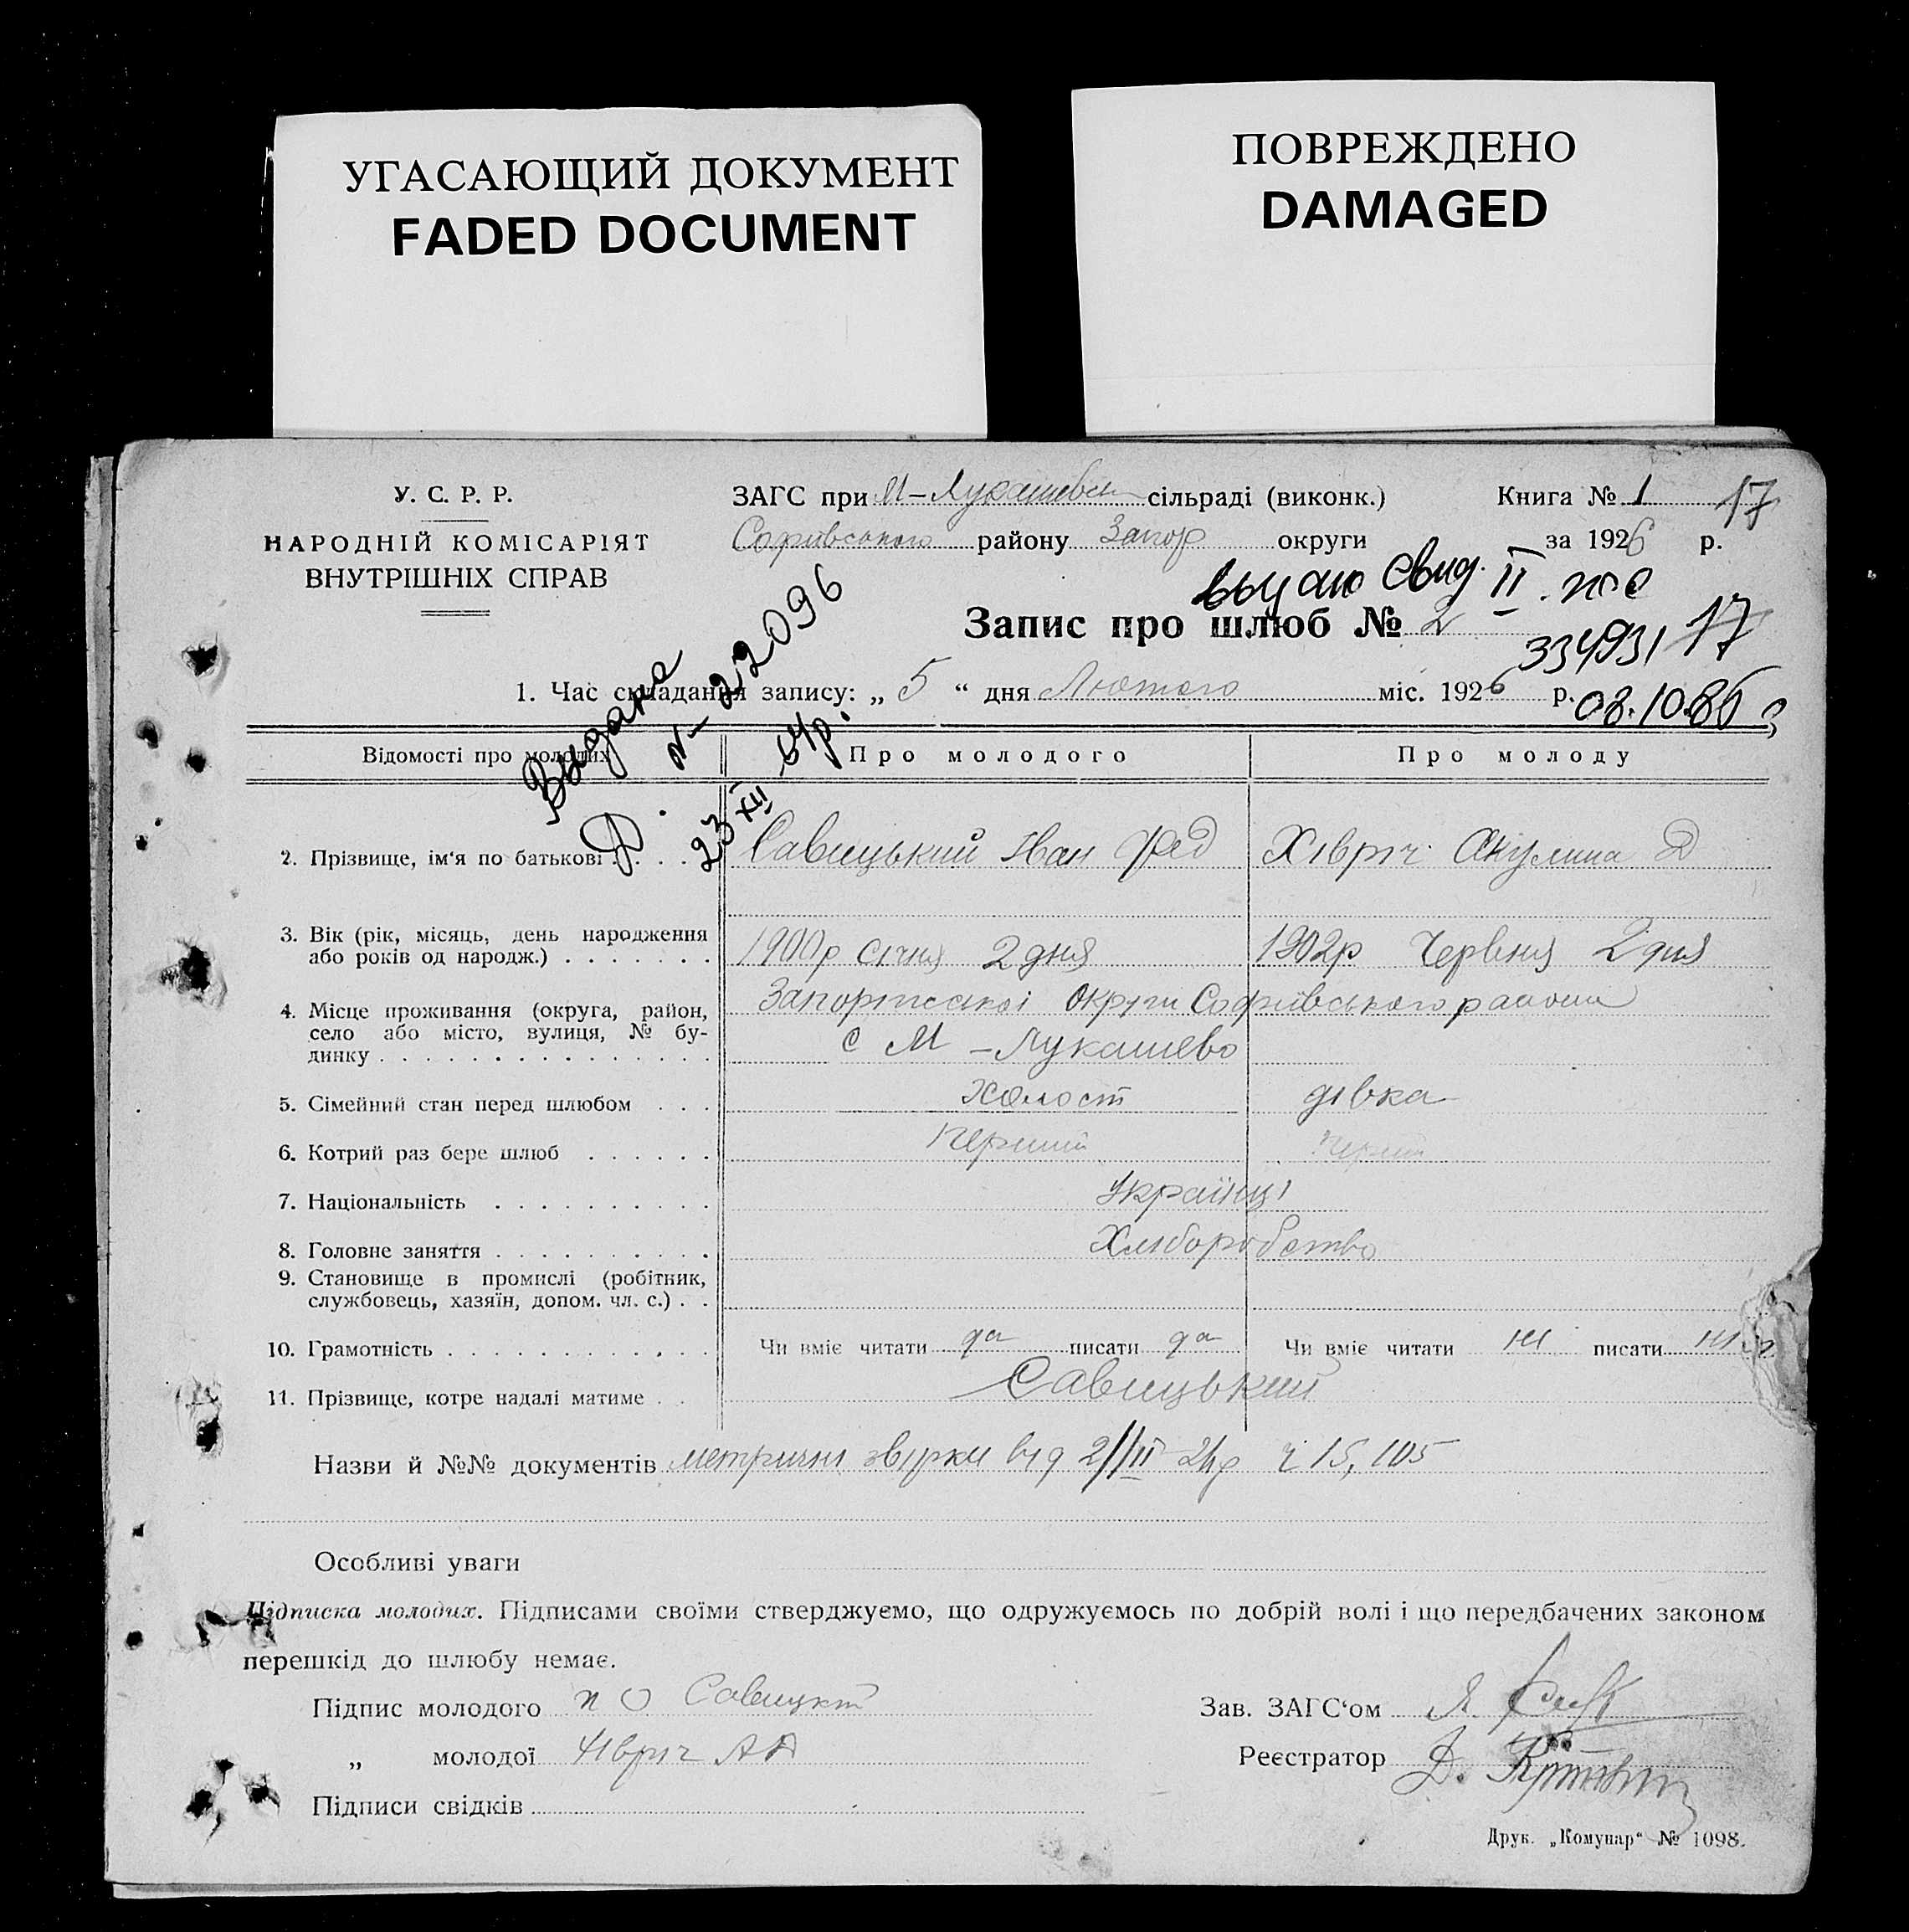 УГАСАЮЩИЙ ДОКУМЕНТ
FADED DOCUMENT
ПОВРЕЖДЕНО
DAMAGED
У. С. Р. Р.
НАРОДНІЙ КОМІСАРІЯТ
ВНУТРІШНІХ СПРАВ
ЗАГС при М-Лукашевск сільраді (виконк.)
Софиівського району Запор округи
Книга № 1 17
за 1926 р.
выдано свид. II. жс
334931 17
08.10.86
Запис про шлюб № 2
Видана
№ 22096
23 XII
1. Час складання запису: „ 5 “ дня Лютого міс. 1926 р.
Відомості про молодих Про молодого Про молоду
2. Прізвище, ім'я по батькові . . . . . Савицький Іван Фед Хівріч Акулина Д
3. Вік (рік, місяць, день народження
або років од народж.) . . . . . . . 1900р січня 2 дня 1902р Червня 2 дня
4. Місце проживання (округа, район, Запоріжської Округи Софиівського району
село або місто, вулиця, № бу-
динку . . . . . . . . . . . . . . . с М-Лукашево
5. Сімейний стан перед шлюбом . . . Холост дівка
6. Котрий раз бере шлюб . . . . . . Перший Перши
7. Національність . . . . . . . . . . Українці
8. Головне заняття . . . . . . . . . . Хліборобство
9. Становище в промислі (робітник,
службовець, хазяїн, допом. чл. с.) . .
10. Грамотність . . . . . . . . . . . . Чи вміє читати да писати да Чи вміє читати ні писати ні
11. Прізвище, котре надалі матиме . . Савицький
Назви й №№ документів метричні звірки від 2/III ч 15, 105
Особливі уваги
Підписка молодих. Підписами своїми стверджуємо, що одружуємось по добрій волі і що передбачених законом
перешкід до шлюбу немає.
Підпис молодого Савицкій
„ молодої Хівріч АД
Підписи свідків
Зав. ЗАГС‘ом Я.
Реєстратор Д.
Друк. „Комунар“ № 1098.